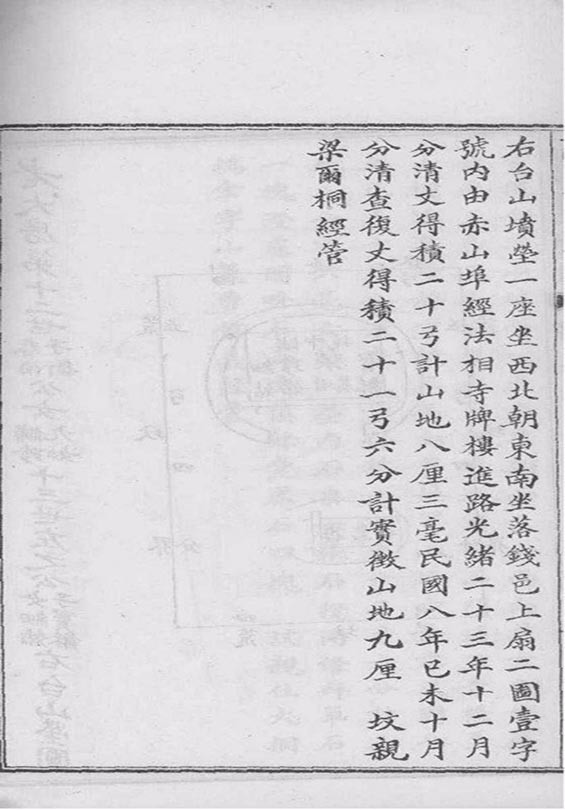 右台山墳塋一座坐西北朝東南坐落錢邑上扇二圖壹字
號內由赤山埠經法相寺牌樓進路光緒二十三年十二月
分清丈得積二十弓計山地八厘三毫民國八年己未十月
分清查復丈得積二十一弓六分計實徵山地九厘 坟親
梁爾桐經管